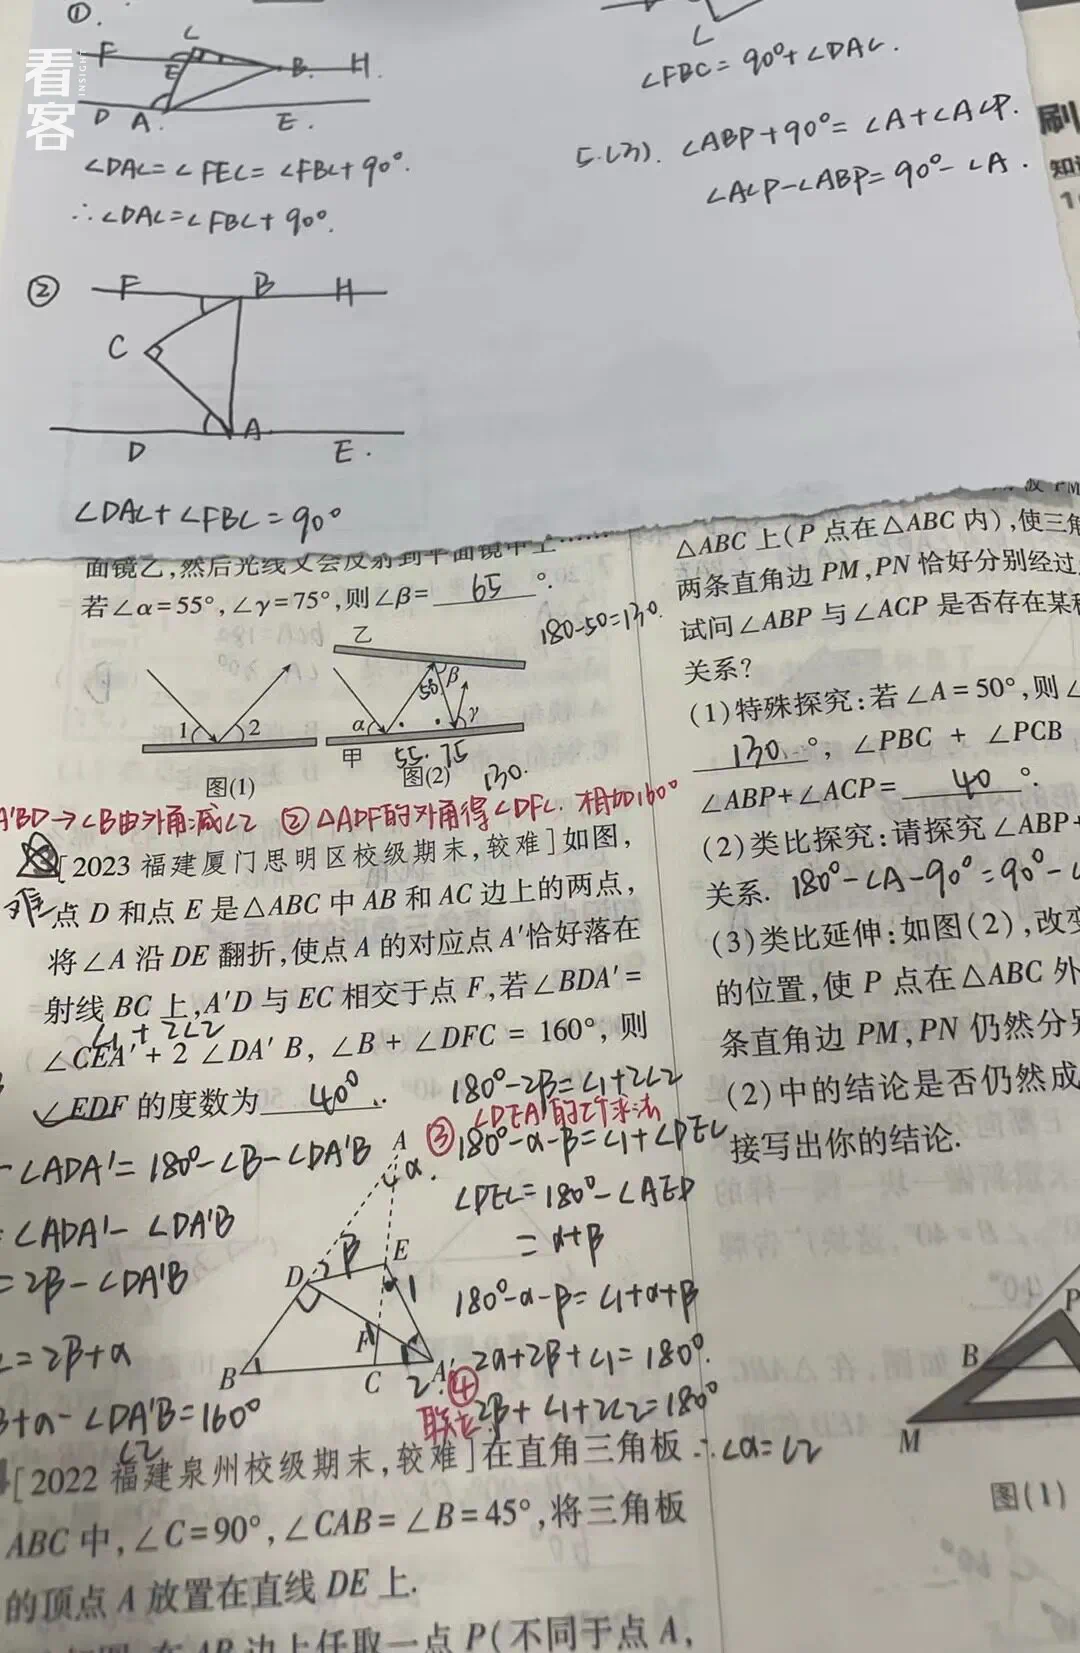 看客
INSIGHT
①.
F C E B. H.
D A. E.
∠DAC=∠FEC=∠FBC+90°.
∴∠DAC=∠FBC+90°.
②
F B H
C
D A E.
∠DAC+∠FBC=90°
∠FBC=90°+∠DAC.
5.(3). ∠ABP+90°=∠A+∠ACP.
∠ACP-∠ABP=90°-∠A.
刷
面镜乙,然后光线又会反射到平面镜甲上……
若∠α=55°,∠γ=75°,则∠β=65°.
180-50=130.
乙
1 2
α 50 β γ
甲 55. 75
图(1) 图(2) 130.
A'BD→∠B由外角减∠2 ②△ADF的外角得∠DFC.相加160°
难
[2023福建厦门思明区校级期末,较难]如图,
点D和点E是△ABC中AB和AC边上的两点,
将∠A沿DE翻折,使点A的对应点A'恰好落在
射线BC上,A'D与EC相交于点F,若∠BDA'=
∠1+2∠2
∠CEA'+2∠DA'B,∠B+∠DFC=160°,则
∠EDF的度数为40°.
180°-2β=∠1+2∠2
③∠DEA'的2个求法
180°-α-β=∠1+∠DEC
∠DEC=180°-∠AED
=α+β
180°-α-β=∠1+α+β
2α+2β+∠1=180°.
④
联立 2β+∠1+2∠2=180°
∴∠α=∠2
-∠ADA'=180°-∠B-∠DA'B
=∠ADA'-∠DA'B
=2β-∠DA'B
=2β+α
+α-∠DA'B=160°
∠2
A α
D β E 1
F
B C A' 2
[2022福建泉州校级期末,较难]在直角三角板
ABC中,∠C=90°,∠CAB=∠B=45°,将三角板
的顶点A放置在直线DE上.
在AB边上任取一点P(不同于点A,
△ABC上(P点在△ABC内),使三角
两条直角边PM,PN恰好分别经过
试问∠ABP与∠ACP是否存在某种
关系?
(1)特殊探究:若∠A=50°,则∠
130°,∠PBC+∠PCB
∠ABP+∠ACP=40°.
(2)类比探究:请探究∠ABP+
关系. 180°-∠A-90°=90°-∠
(3)类比延伸:如图(2),改变
的位置,使P点在△ABC外
条直角边PM,PN仍然分别
(2)中的结论是否仍然成
接写出你的结论.
P
B
M
图(1)